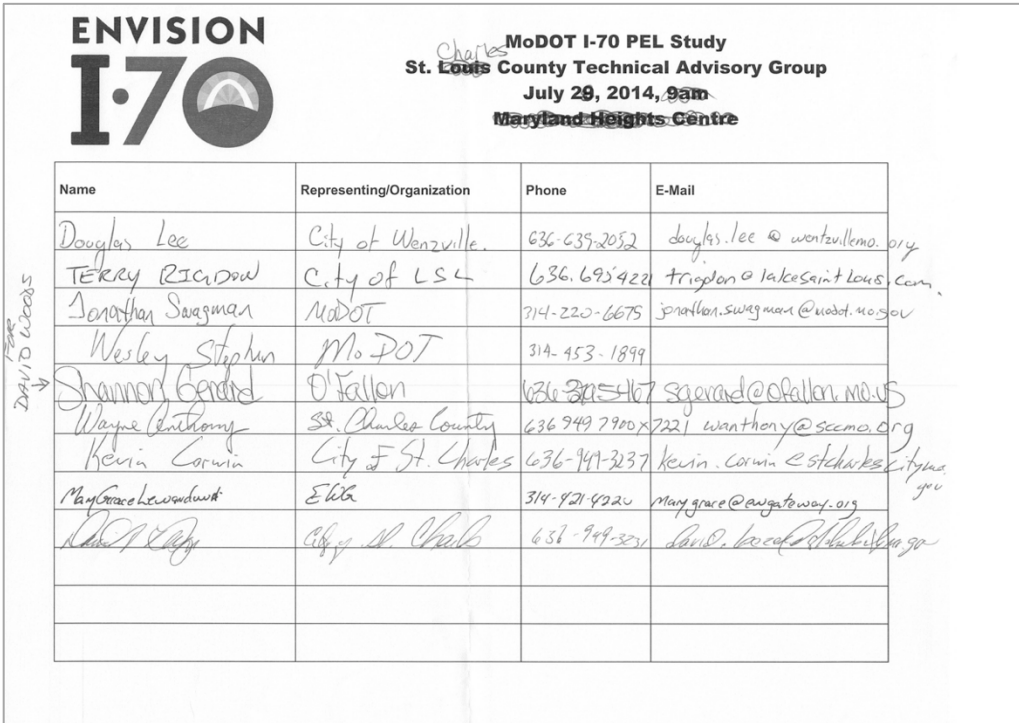 ENVISION
I·70
Charles
MoDOT I-70 PEL Study
St. Louis County Technical Advisory Group
July 29, 2014, 9am
Maryland Heights Centre
Name Representing/Organization Phone E-Mail
Douglas Lee City of Wenzville. 636-639-2052 douglas.lee @ wentzvillemo.org
TERRY RIGDON City of LSL 636.695 4221 trigdon@lakesaintlouis.com.
Jonathan Swagman MoDOT 314-220-6675 jonathan.swagman@modot.mo.gov
Wesley Stephen MoDOT 314-453-1899
FOR
DAVID WOODS
Shannon Gerard O'Fallon sgerard@ofallon.mo.us
Wayne Anthony St. Charles County 636 949 7900 x7221 wanthony@sccmo.org
Kevin Corwin City of St. Charles 636-949-3237 kevin.corwin@stcharlescitymo.gov
Mary Grace EWG 314-421-4220 marygrace@ewgateway.org
City of St. Charles 636-949-3231